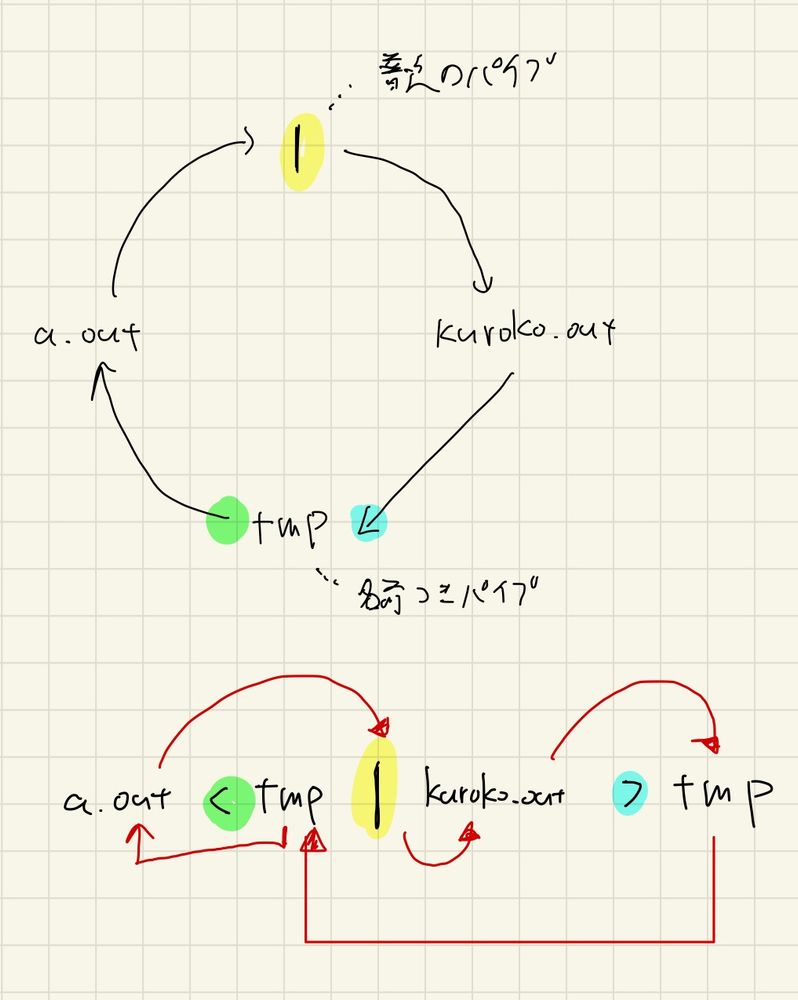 のパイプ
|
a.out
kuroko.out
tmp
名前つきパイプ
a.out < tmp | kuroko.out > tmp